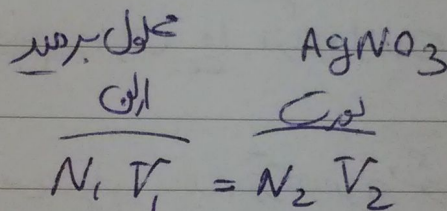 محلول برمید AgNO3
ارلن بورت
N1 V1 = N2 V2